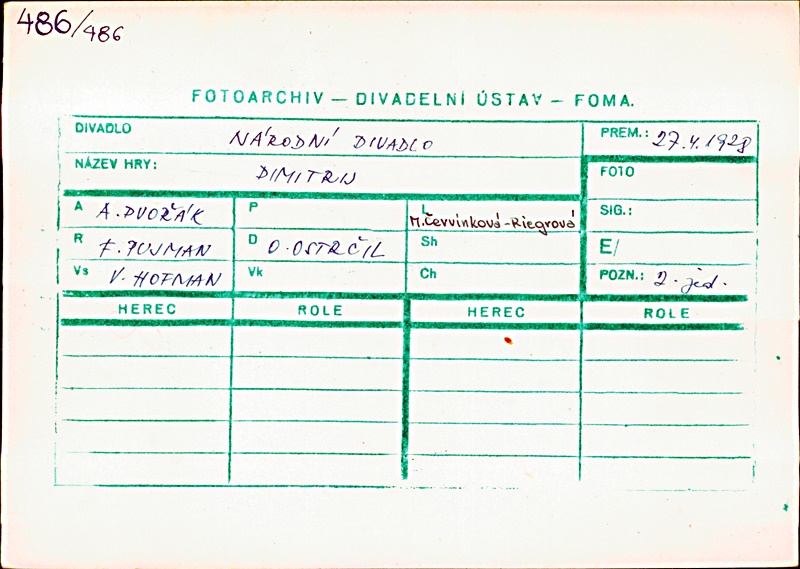 486/486
FOTOARCHIV — DIVADELNÍ ÚSTAV — FOMA.
DIVADLO NÁRODNÍ DIVADLO PREM.: 27.4.1928
NÁZEV HRY: DIMITRIJ FOTO
A A. DVOŘÁK P L M.Červinková-Riegrová SIG.:
R F. PUJMAN D O. OSTRČIL Sh E/
Vs V. HOFMAN Vk Ch POZN.: 2. jed.
HEREC ROLE HEREC ROLE